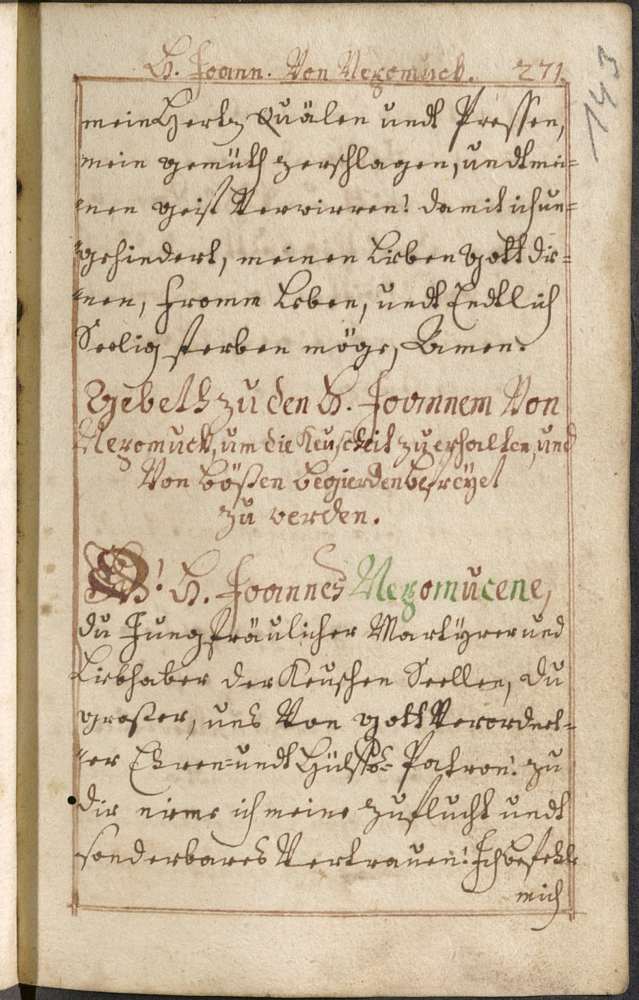 H. Joann. Von Nepomuck. 271.
143
mein Hertz Quälen undt Pressen,
mein gemüth zerschlagen, undt mei=
nen geist Verwirren! damit ich un=
gehindert, meinen lieben gott die=
nen, fromm leben, undt Endtlich
Seelig sterben möge, Amen.
Gebeth zu den H. Joannem Von
Nepomuck, um die Keuschheit zu erhalten, und
Von bößen begierden befreyet
zu werden.
O! H. Joannes Nepomucene,
du Jungfräulicher Martÿrer und
Liebhaber der Keuschen Seellen, du
grosser, uns Von gott Verordnet=
er Ehren= undt Hülffs= Patron! zu
dir nime ich meine Zuflucht undt
sonderbares Vertrauen! Ich befehle
mich